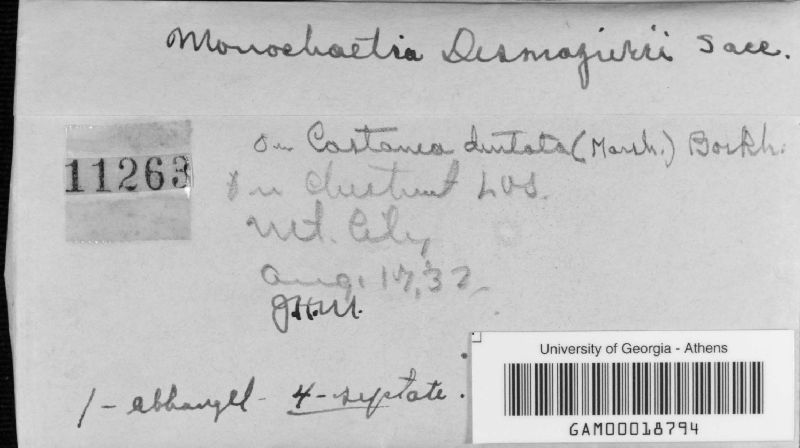 Monochaetia Desmazierii Sacc.
On Castanea dentata (Marsh.) Borkh.
11263
On chestnut lvs.
Mt. City
Aug. 17, 32
J.H.M.
University of Georgia - Athens
GAM00018794
1- 4-septate.